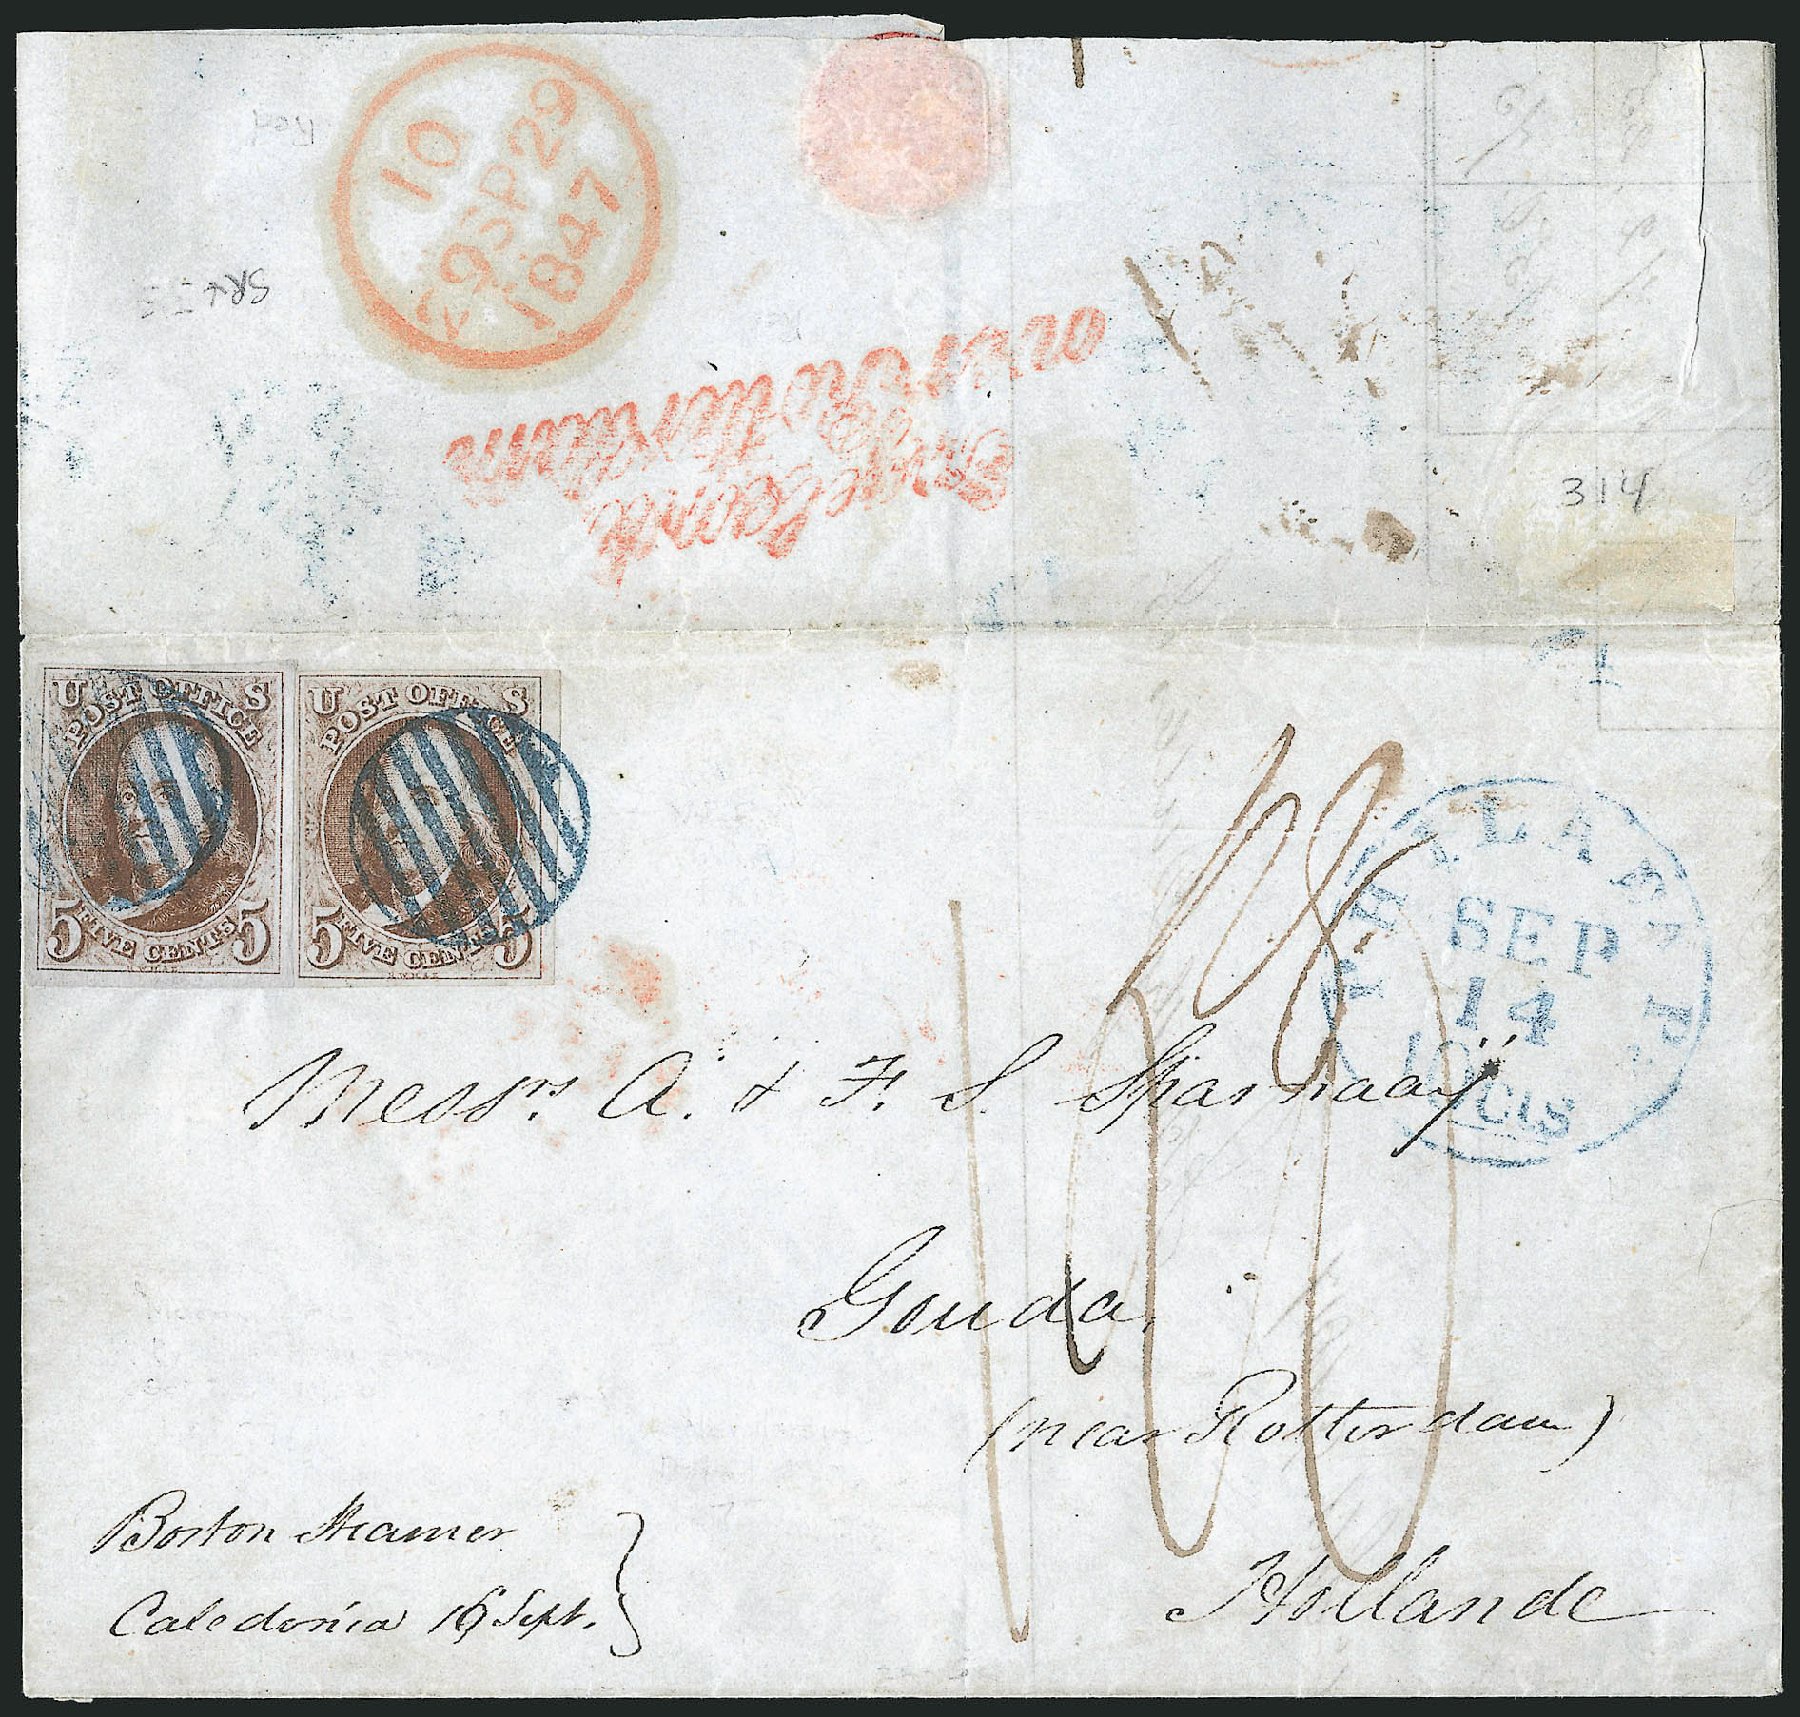 10
29 SP 29
1847
Engeland
over Rotterdam
314
U S
POST OFFICE
5 FIVE CENTS 5
U S
POST OFFICE
5 FIVE CENTS 5
PHILADA Pa.
SEP
14
10 cts
Messrs. A. & F. S. Sparnaaÿ
Gouda.
(near Rotterdam)
Hollande
Boston Steamer
Caledonia 16 Sept.